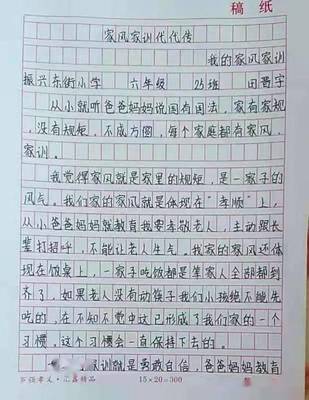 稿 纸
家风家训代代传
我的家风家训
振兴东街小学 六年级 25班 田晋宇
从小就听爸爸妈妈说国有国法，家有家规
，没有规矩，不成方圆，每个家庭都有家风，
家训。
我觉得家风就是家里的规矩，是一家子的
风气。我们家的家风就是体现在"孝顺"上，
从小爸爸妈妈就教育我要孝敬老人，主动跟长
辈打招呼，不能让老人生气，我家的家风还体
现在饭桌上，一家子吃饭都是等家人全部都到
齐了，如果老人没有动筷子我们小孩绝不能先
吃的，在不知不觉中这已形成了我们家的一个
习惯，这个习惯会一直保持下去的。
家训就是勇敢自信，爸爸妈妈教育
精品
15×20=300